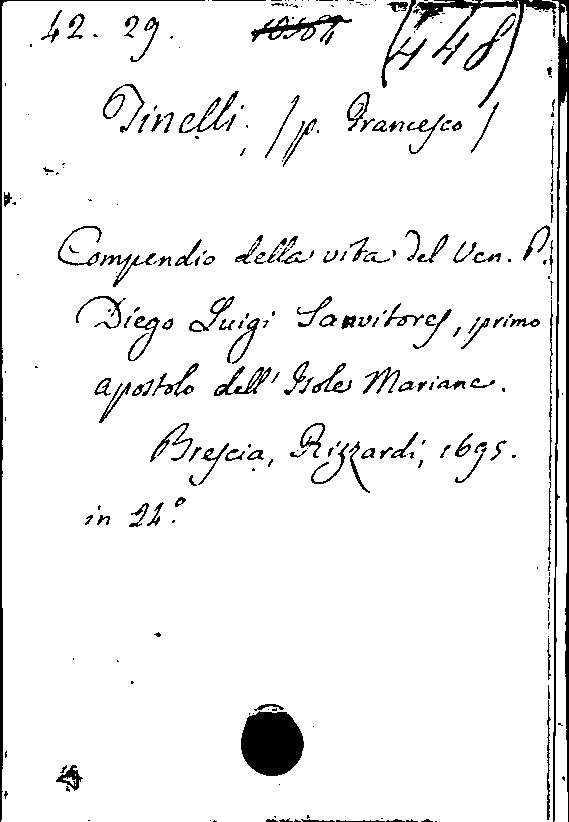 42. 29. (448)
Tinelli. /p. Francesco/
Compendio della vita del Ven. P.
Diego Luigi Sanvitores, primo
apostolo dell' Isole Mariane.
Brescia, Rizzardi, 1695.
in 24.°